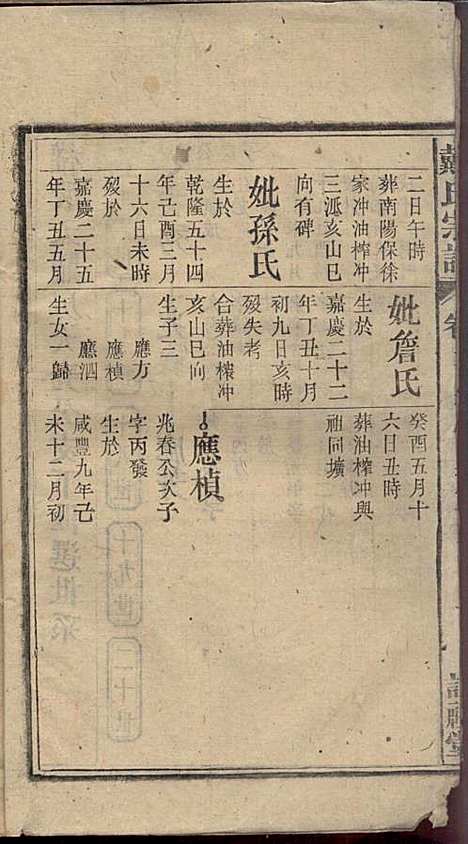 戴氏宗譜
二日午時
葬南陽保徐
家冲油榨冲
三派亥山巳
向有碑
妣孫氏
生於
乾隆五十四
年己酉三月
十六日未時
歿於
嘉慶二十五
年丁丑五月
妣詹氏
生於
嘉慶二十二
年丁丑十月
初九日亥時
歿失考
合葬油榨冲
亥山巳向
生子三
應方
應楨
應泗
生女一歸
癸酉五月十
六日丑時
葬油榨冲與
祖同壙
應楨
兆春公次子
字丙發
生於
咸豐九年己
未十二月初